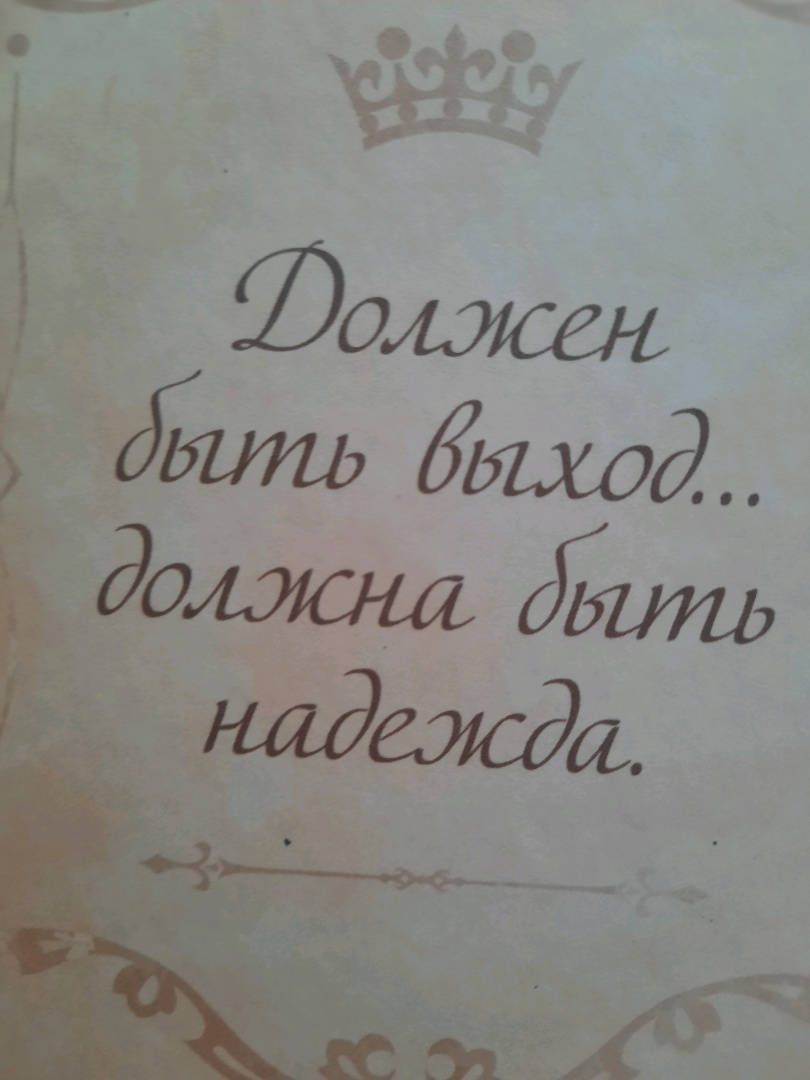 Должен
быть выход...
должна быть
надежда.